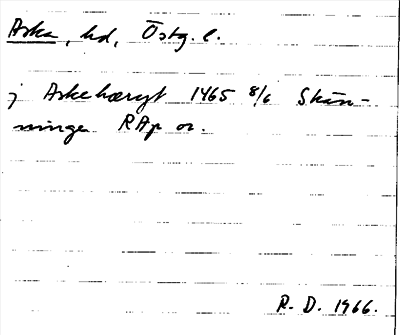 Aska, hd, Östg. l.
j Askehæryt 1465 8/6 Skän-
ninge RAp or.
R. D. 1966.